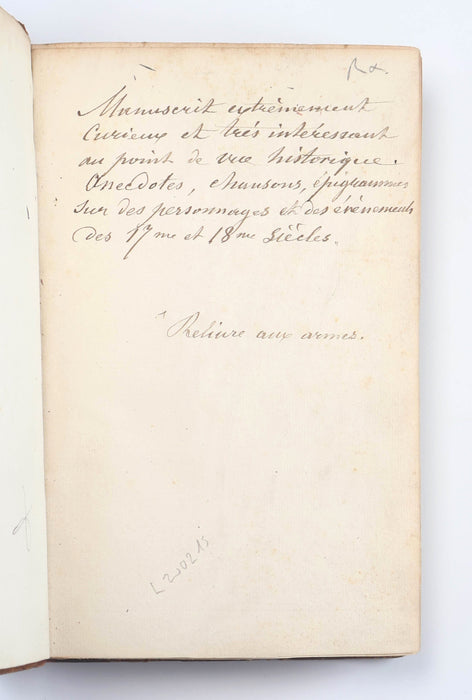 Manuscrit extrèmement
Curieux et très intéressant
au point de vue historique.
Anecdotes, chansons, épigrammes
sur des personnages et des évènements
des 17me et 18me Siècles.
Reliure aux armes.
L 200215